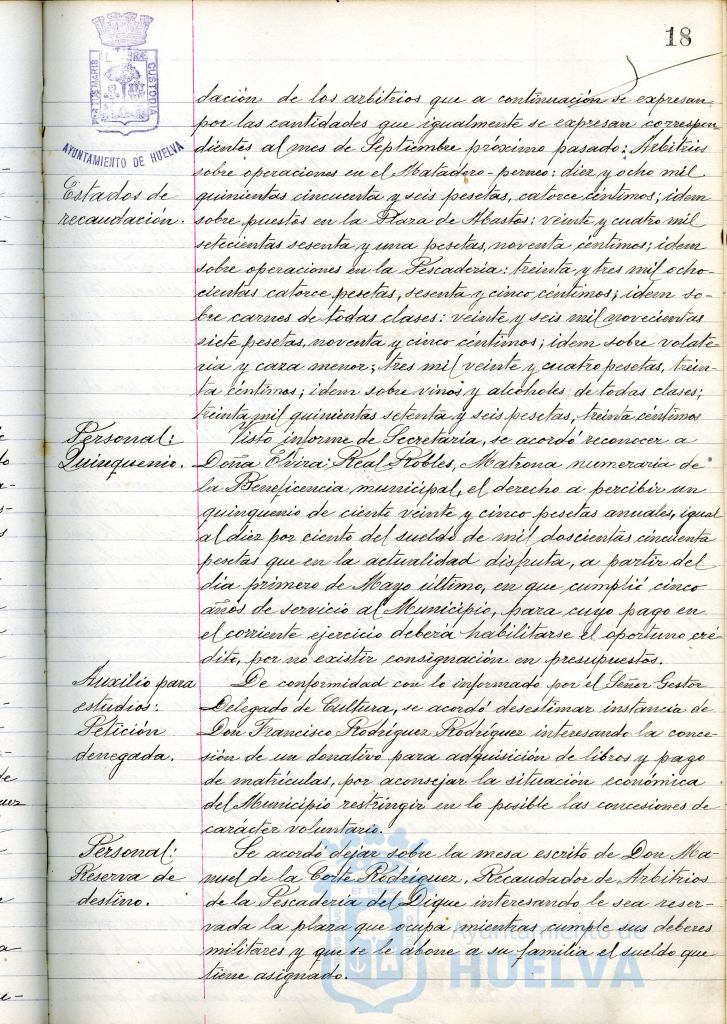 18
PORTUS MARIS
CUSTODIA
AYUNTAMIENTO DE HUELVA
dación de los arbitrios que a continuación se expresan
por las cantidades que igualmente se expresan correspon
dientes al mes de Septiembre próximo pasado: Arbitrios
sobre operaciones en el Matadero-perneo: diez y ocho mil
Estados de
recaudación.
quinientas cincuenta y seis pesetas, catorce céntimos; idem
sobre puestos en la Plaza de Abastos: veinte y cuatro mil
setecientas sesenta y una pesetas, noventa céntimos; idem
sobre operaciones en la Pescadería: treinta y tres mil ocho-
cientas catorce pesetas, sesenta y cinco céntimos; idem so-
bre carnes de todas clases: veinte y seis mil novecientas
siete pesetas, noventa y cinco céntimos; idem sobre volate-
ria y caza menor; tres mil veinte y cuatro pesetas, trein-
ta céntimos; idem sobre vinos y alcoholes de todas clases;
treinta mil quinientas setenta y seis pesetas, treinta céntimos
Personal:
Quinquenio.
Visto informe de Secretaria, se acordó reconocer a
Doña Elvira Real Robles, Matrona numeraria de
la Beneficencia municipal, el derecho a percibir un
quinquenio de ciento veinte y cinco pesetas anuales, igual
al diez por ciento del sueldo de mil doscientas cincuenta
pesetas que en la actualidad disfruta, a partir del
dia primero de Mayo último, en que cumplió cinco
años de servicio al Municipio, para cuyo pago en
el corriente ejercicio debería habilitarse el oportuno cré
dito, por no existir consignación en presupuestos.
Auxilio para
estudios:
Petición
denegada.
De conformidad con lo informado por el Señor Gestor
Delegado de Cultura, se acordó desestimar instancia de
Don Francisco Rodríguez Rodríguez interesando la conce-
sión de un donativo para adquisición de libros y pago
de matrículas, por aconsejar la situación económica
del Municipio restringir en lo posible las concesiones de
carácter voluntario.
Personal:
Reserva de
destino.
Se acordó dejar sobre la mesa escrito de Don Ma-
nuel de la Corte Rodríguez, Recaudador de Arbitrios
de la Pescadería del Dique interesando le sea reser-
vada la plaza que ocupa mientras cumple sus deberes
militares y que se le abone a su familia el sueldo que
tiene asignado.
Ayuntamiento de
HUELVA